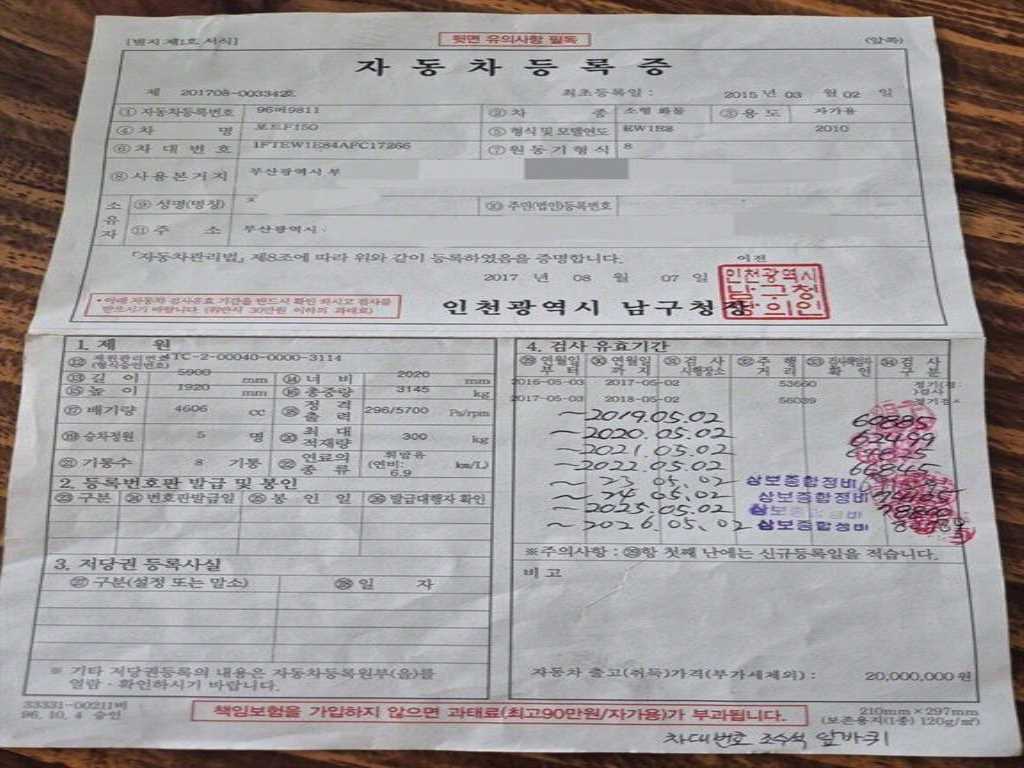 [별지 제1호 서식]
뒷면 유의사항 필독
(앞쪽)
자동차등록증
제 201708-003342호 최초등록일 : 2015 년 03 월 02 일
① 자동차등록번호 96버9811 ② 차 종 소형 화물 ③ 용 도 자가용
④ 차 명 포드F150 ⑤ 형식 및 모델연도 EW1E8 2010
⑥ 차 대 번 호 1FTEW1E84AFC17266 ⑦ 원 동 기 형 식 8
⑧ 사 용 본 거 지 부산광역시 부
소유자 ⑨ 성명(명칭) ⑩ 주민(법인)등록번호
⑪ 주 소 부산광역시
「자동차관리법」 제8조에 따라 위와 같이 등록하였음을 증명합니다.
이전
2017 년 08 월 07 일
• 아래 자동차 검사유효 기간을 반드시 확인 하시고 검사를
받으시기 바랍니다. (위반시 30만원 이하의 과태료)
인천광역시 남구청장
인천광역시
남구청
1. 제 원
⑫ 제원관리번호 (형식승인번호) TC-2-00040-0000-3114
⑬ 길 이 5900 mm ⑭ 너 비 2020 mm
⑮ 높 이 1920 mm ⑯ 총중량 3145 kg
⑰ 배기량 4606 cc ⑱ 정격 출력 296/5700 Ps/rpm
⑲ 승차정원 5 명 ⑳ 최 대 적재량 300 kg
㉑ 기통수 8 기통 ㉒ 연료의 종 류 휘발유 (연비: 6.9 km/L)
2. 등록번호판 발급 및 봉인
㉓ 구분 ㉔ 번호판발급일 ㉕ 봉 인 일 ㉖ 발급대행자 확인
3. 저당권 등록사실
㉗ 구분(설정 또는 말소) ㉘ 일 자
※ 기타 저당권등록의 내용은 자동차등록원부(을)를
열람 · 확인하시기 바랍니다.
4. 검사 유효기간
㉙ 연월일 부터 ㉚ 연월일 까지 ㉛ 검 사 시행장소 ㉜ 주 행 거 리 ㉝ 확 인 ㉞ 검 사 구 분
2016-05-03 2017-05-02 53660
2017-05-03 2018-05-02 56039
~2019.05.02 60885
~2020.05.02 62499
~2021.05.02
~2022.05.02
~23 05.02 상보종합정비
~24.05.02 상보종합정비
~2025.05.02 상보종합정비
~2026.05.02 상보종합정비
※주의사항 : ㉙항 첫째 난에는 신규등록일을 적습니다.
비 고
자동차 출고(취득)가격(부가세제외) : 20,000,000 원
33331-00211비
96. 10. 4 승인
책임보험을 가입하지 않으면 과태료(최고90만원/자가용)가 부과됩니다.
210mm×297mm
(보존용지(1종) 120g/㎡)
차대번호 조수석 앞바퀴